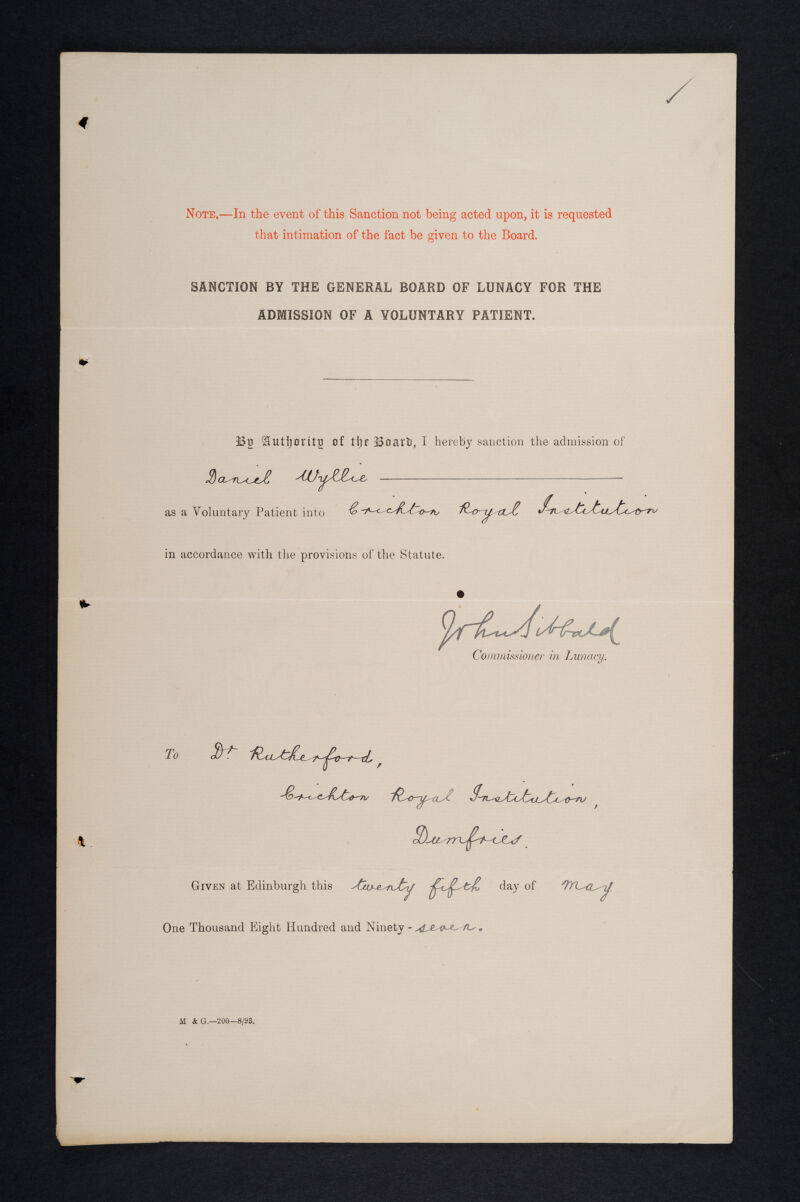 NOTE,—In the event of this Sanction not being acted upon, it is requested
that intimation of the fact be given to the Board.
SANCTION BY THE GENERAL BOARD OF LUNACY FOR THE
ADMISSION OF A VOLUNTARY PATIENT.
By Authority of the Board, I hereby sanction the admission of
Daniel Wyllie
as a Voluntary Patient into Crichton Royal Institution
in accordance with the provisions of the Statute.
John Sibbald
Commissioner in Lunacy.
To Dr. Rutherford,
Crichton Royal Institution,
Dumfries.
GIVEN at Edinburgh this twenty fifth day of May
One Thousand Eight Hundred and Ninety - seven.
M & G.—200—8/93.